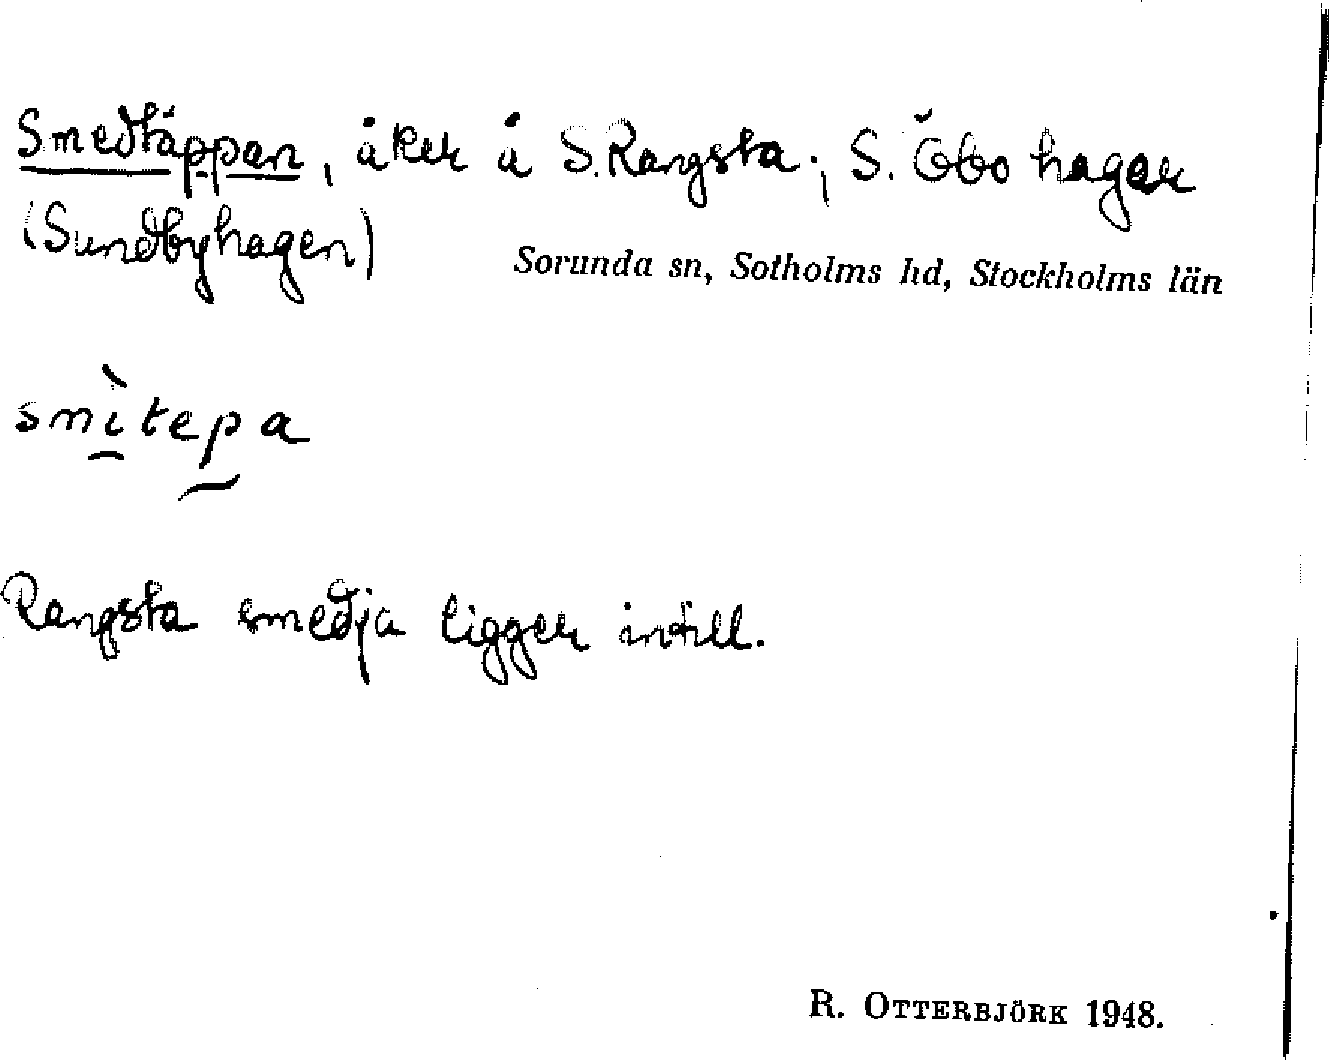 Smedtäppan, åker å S. Rangsta; S. Öbo hagar
(Sundbyhagen)
Sorunda sn, Sotholms hd, Stockholms län
smìtepa
Rangsta smedja ligger intill.
R. OTTERBJÖRK 1948.